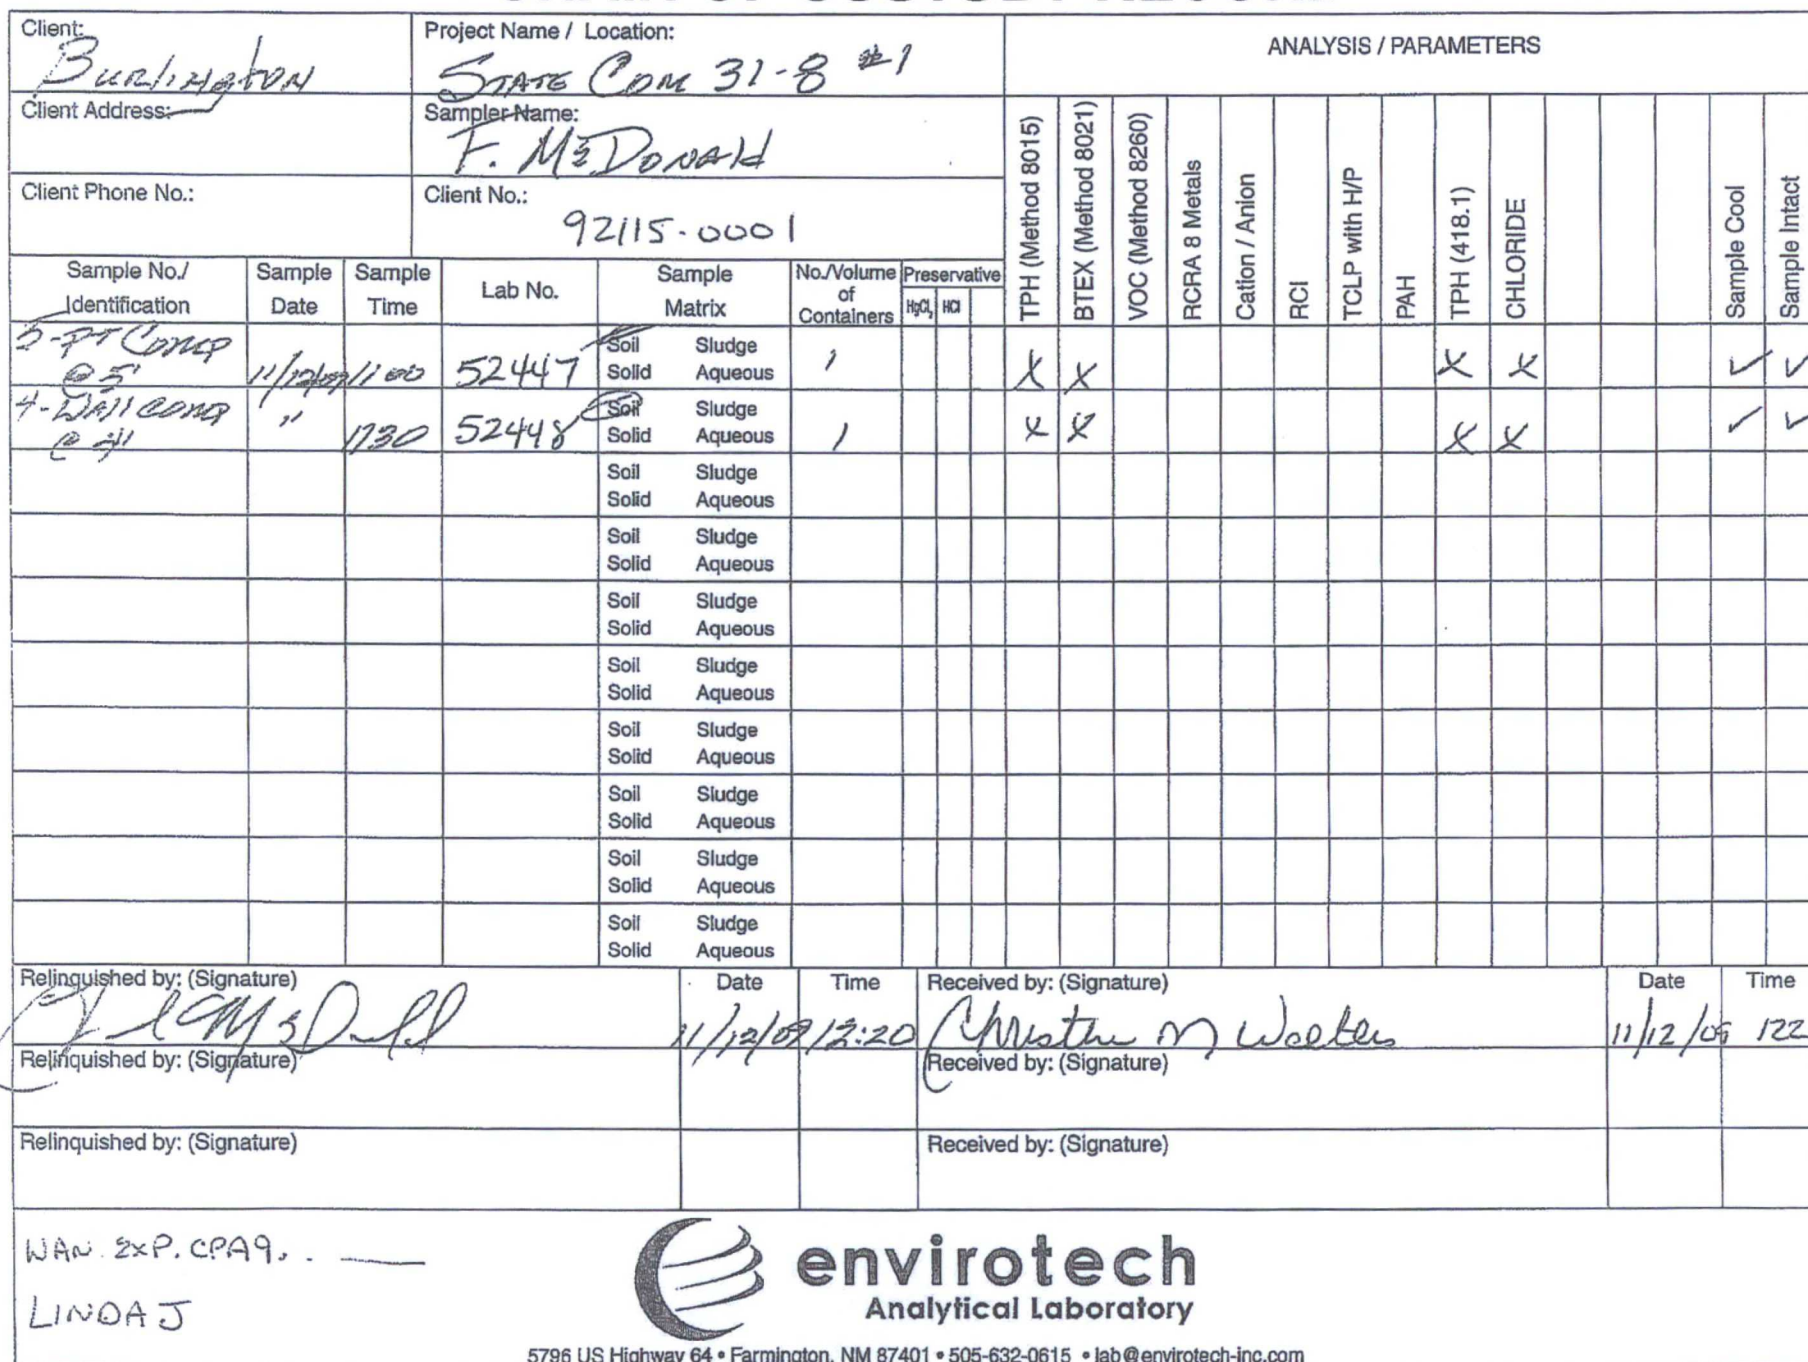 Client:
Burlington
Project Name / Location:
STATE COM 31-8 #1
ANALYSIS / PARAMETERS
Client Address:
Sampler Name:
F. McDonald
Client Phone No.:
Client No.:
92115-0001
Sample No./ Identification
Sample Date
Sample Time
Lab No.
Sample Matrix
No./Volume of Containers
Preservative
HgCl₂ HCl
TPH (Method 8015)
BTEX (Method 8021)
VOC (Method 8260)
RCRA 8 Metals
Cation / Anion
RCI
TCLP with H/P
PAH
TPH (418.1)
CHLORIDE
Sample Cool
Sample Intact
-PT Comp @ 5' 11/12/09 1100 52447 Soil Sludge 1 X X X X ✓ ✓
Solid Aqueous
4-Wall Comp @ " 52448 Soil Sludge 1 X X X X ✓ ✓
Solid Aqueous
Soil Sludge
Solid Aqueous
Soil Sludge
Solid Aqueous
Soil Sludge
Solid Aqueous
Soil Sludge
Solid Aqueous
Soil Sludge
Solid Aqueous
Soil Sludge
Solid Aqueous
Soil Sludge
Solid Aqueous
Soil Sludge
Solid Aqueous
Relinquished by: (Signature)
Date
Time
Received by: (Signature)
Date
Time
11/12/09 12:20 Christine M Walters 11/12/09 122
Relinquished by: (Signature)
Received by: (Signature)
Relinquished by: (Signature)
Received by: (Signature)
LINDA J
envirotech
Analytical Laboratory
5796 US Highway 64 • Farmington, NM 87401 • 505-632-0615 • lab@envirotech-inc.com